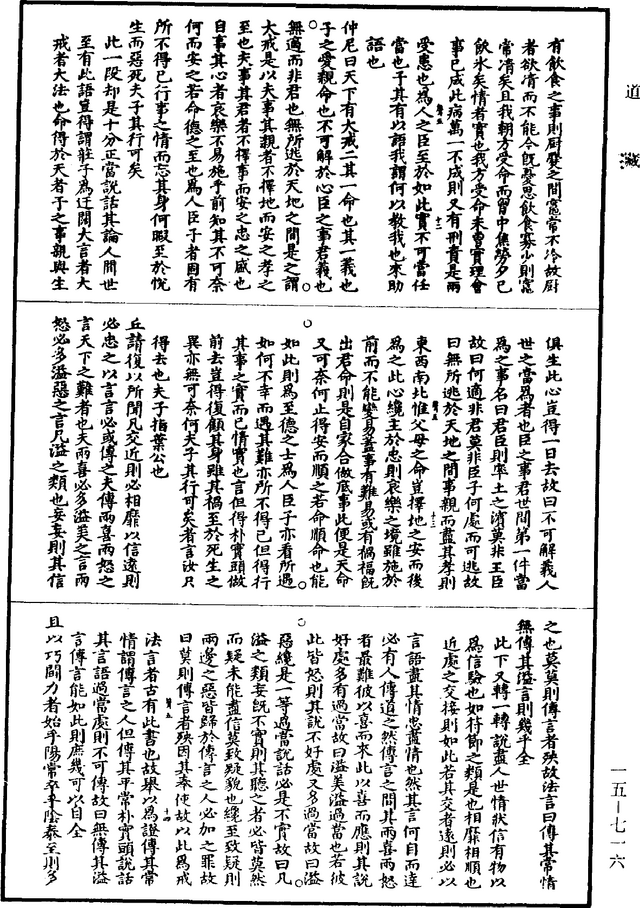 道藏
有飲食之事則厨爨之間竈常不冷故厨
者欲凊而不能今既憂思飲食寡少則竈
常凊矣且我朝方受命而胷中焦勞夕已
飲氷矣情者實也我方受命未曾實理會
事已成此病萬一不成則又有刑責是兩
受患也為人之臣至於如此實不可當任
當也子其有以語我謂何以教我也來助
語也
仲尼曰天下有大戒二其一命也其一義也
子之愛親命也不可解於心臣之事君義也
無適而非君也無所逃於天地之間是之謂
大戒是以夫事其親者不擇地而安之孝之
至也夫事其君者不擇事而安之忠之盛也
自事其心者哀樂不易施乎前知其不可奈
何而安之若命德之至也為人臣子者固有
所不得已行事之情而忘其身何暇至於悅
生而惡死夫子其行可矣
此一段却是十分正當說話其論人間世
至有此語豈得謂莊子為迂闊大言者大
戒者大法也命得於天者子之事親與生
俱生此心豈得一日去故曰不可解義人
世之當為者也臣之事君世間第一件當
為之事名曰君臣則率土之濱莫非王臣
故曰何適非君莫非臣子何處而可逃故
曰無所逃於天地之間事親而盡其孝則
東西南北惟父母之命豈擇地之安而後
為之此心纔主於忠則哀樂之境雖施於
前而不能變易蓋事有難易或有禍福既
出君命則是自家合做底事此便是天命
又可奈何止得安而順之若命順命也能
如此則為至德之士為人臣子亦看所遇
如何不幸而遇其難亦所不得已但得行
其事之實而已情實也言但得朴實頭做
前去豈得復顧其身雖其禍至於死生之
異亦無可奈何夫子其行可矣者言汝只
得去也夫子指葉公也
丘請復以所聞凡交近則必相靡以信遠則
必忠之以言言必或傳之夫傳兩喜兩怒之
言天下之難者也夫兩喜必多溢美之言兩
怒必多溢惡之言凡溢之類也妄妄則其信
之也莫莫則傳言者殃故法言曰傳其常情
無傳其溢言則幾乎全
此下又轉一轉說盡人世情狀信有物以
為信驗也如符節之類是也相靡相順也
近處之交接則如此若其交者遠則必以
言語盡其情忠盡情也然其言何自而達
必有人傳道之然傳言之間其兩喜兩怒
者最難彼以喜而來此以喜而應則其說
好處多有過當故曰溢美溢過當也若彼
此皆怒則其說不好處又多過當故曰溢
惡纔是一等過當說話必是不實故曰凡
溢之類妄既不實則其聽之者必皆莫然
而疑未能盡信莫致疑貌也纔至致疑則
兩邊之惡皆歸於傳言之人必加之罪故
曰莫則傳言者殃因其奉使故以此為戒
法言者古有此書也故舉以為證傳其常
情謂傳言之人但傳其平常朴實頭說話
其言語過當處則不可傳故曰無傳其溢
言傳言能如此則庶幾可以自全
且以巧鬪力者始乎陽常卒乎陰泰至則多
一五—七一六